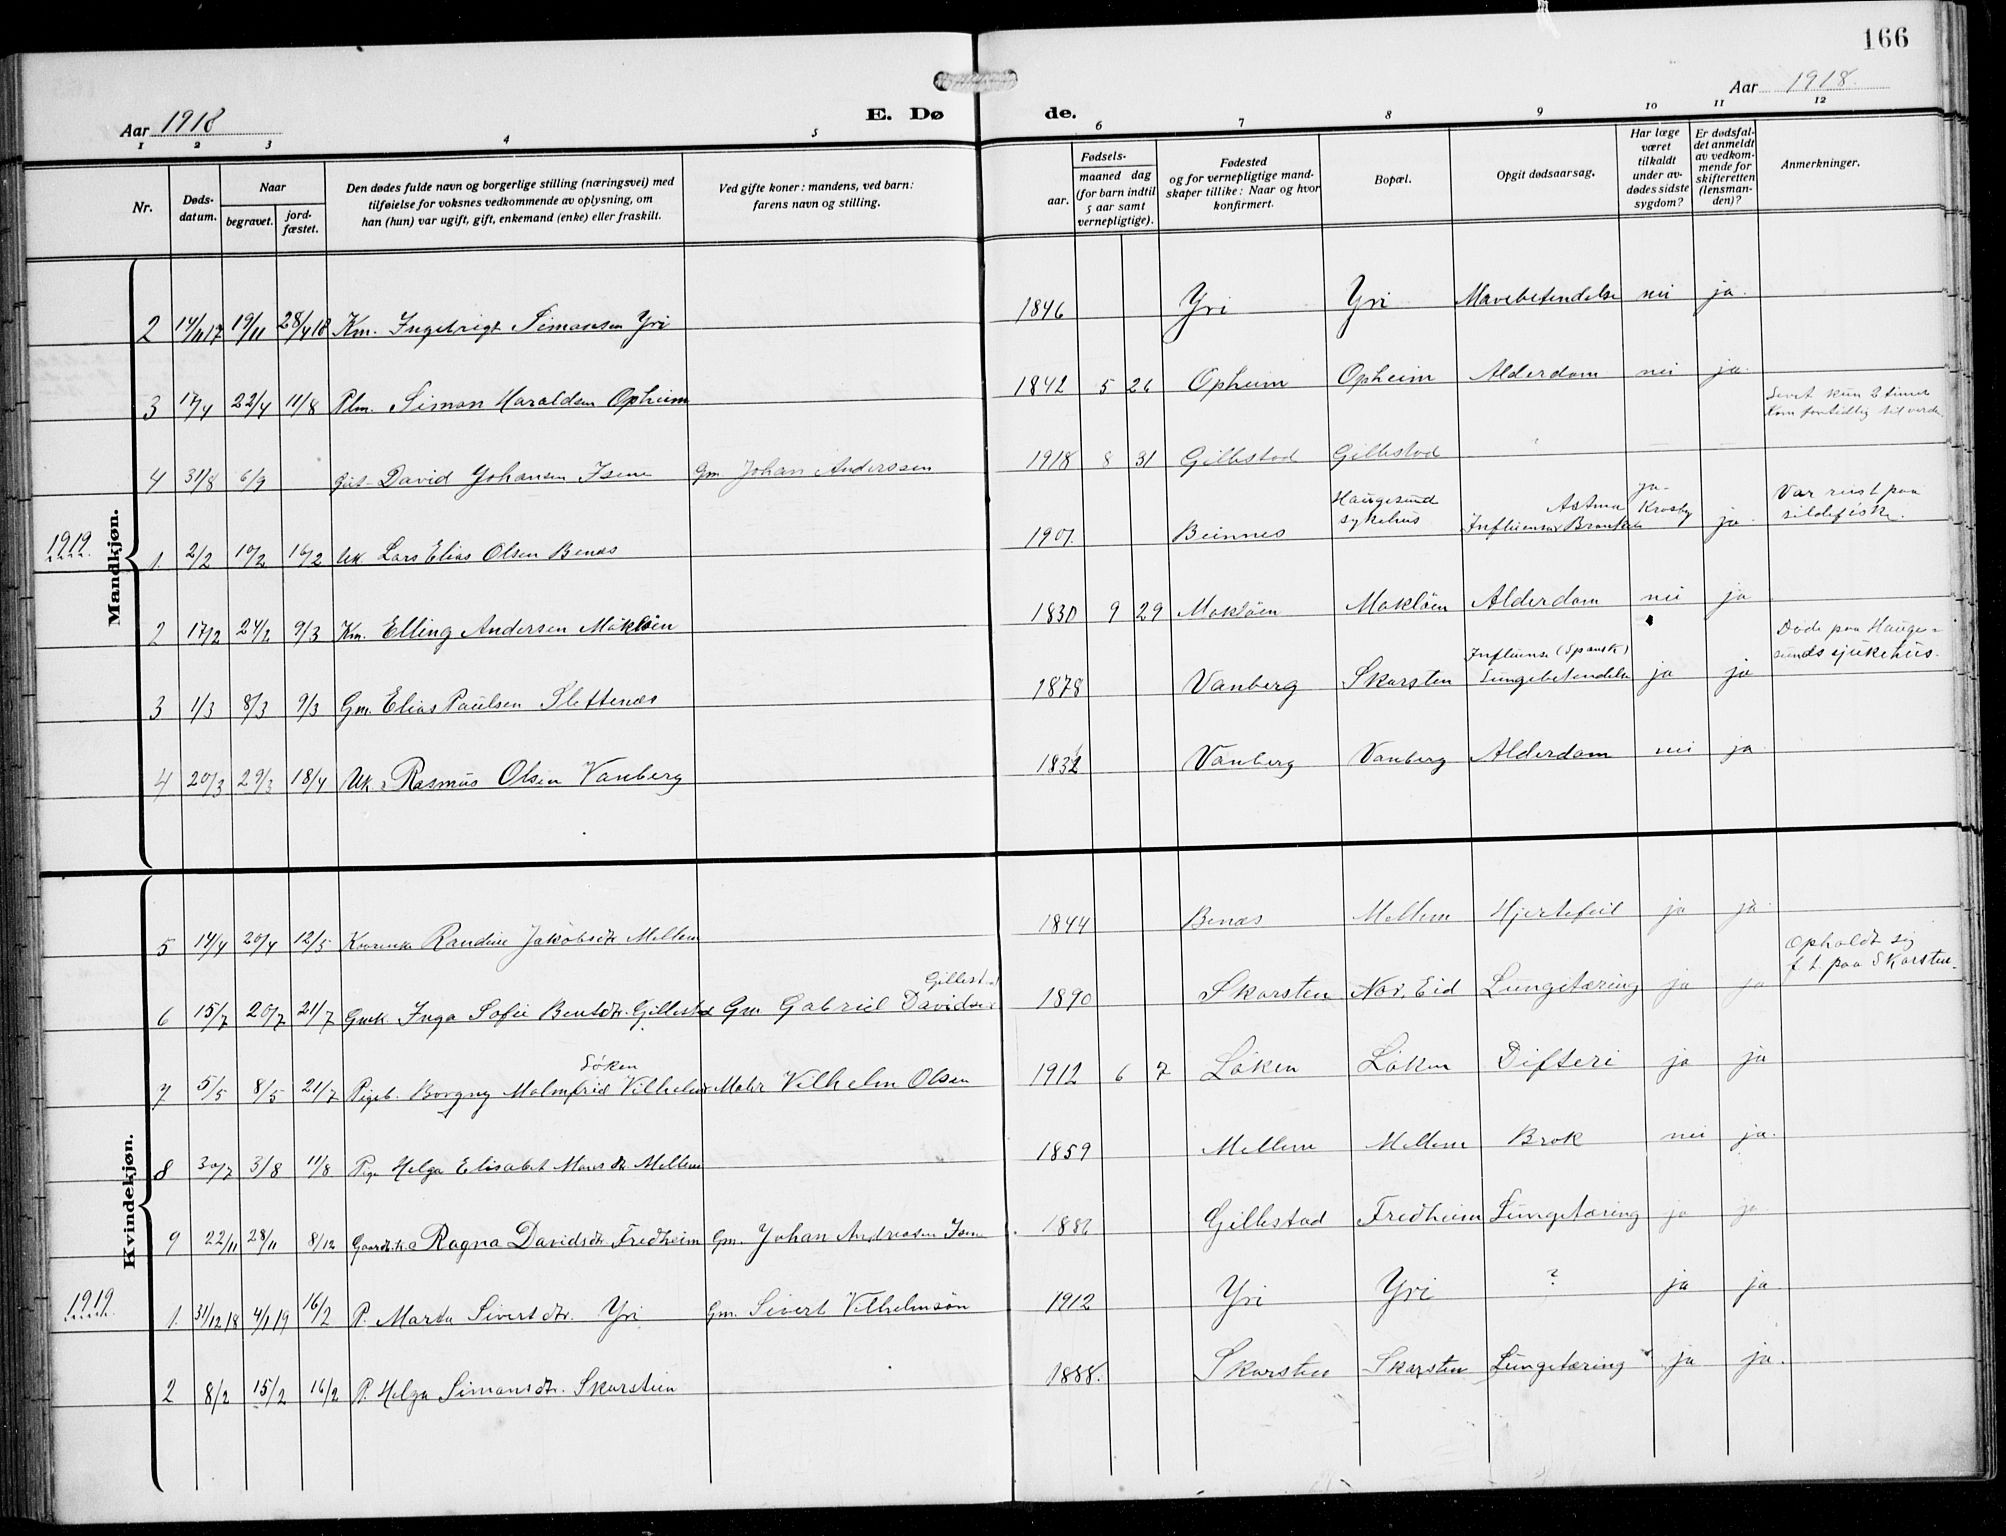 166
Aar 1918
E. Dø
de.
Aar 1918.
1 2 3 4 5 6 7 8 9 10 11 12
Nr.
Døds-
datum.
Naar
begravet.
jord-
fæstet.
Den dødes fulde navn og borgerlige stilling (næringsvei) med
tilføielse for voksnes vedkommende av oplysning, om
han (hun) var ugift, gift, enkemand (enke) eller fraskilt.
Ved gifte koner: mandens, ved barn:
farens navn og stilling.
Fødsels-
aar.
maaned dag
(for barn indtil
5 aar samt
vernepligtige).
Fødested
og for vernepligtige mand-
skaper tillike: Naar og hvor
konfirmert.
Bopæl.
Opgit dødsaarsag.
Har læge
været
tilkaldt
under av-
dødes sidste
sygdom?
Er dødsfal-
det anmeldt
av vedkom-
mende for
skifteretten
(lensman-
den)?
Anmerkninger.
Mandkjøn.
2 14/11 17 19/11 28/4 18 Km. Ingebrigt Simonsen Yri 1846 Yri Yri Mavebetendelse nei ja.
3 17/4 22/4 11/8 Plm. Simon Haraldsen Opheim 1842 5 26 Opheim Opheim Alderdom nei ja.
Levet kun 2 timer
Kom fortidlig til verden.
4 31/8 6/9 David Johansen Isene Gm. Johan Anderssen 1918 8 31 Gillestad Gillestad ? — —
1919.
1. 2/2 10/2 16/2 Uk. Lars Elias Olsen Benæs 1901. Beinnes
Haugesund
sykehus
Astma
Influensa Bronkit
ja-
Krosby
ja.
Var reist paa
sildefiske.
2 17/2 24/2 9/3 Km. Elling Andersen Mokløen 1830 9 29 Mokløen Mokløen Alderdom nei ja
3 1/3 8/3 9/3 Gm. Elias Paulsen Slettenæs 1878 Vanberg Skorsten
Influense (Spansk)
Lungebetendelse
ja ja
Døde paa Hauge-
sunds sjukehus.
4 20/3 29/3 18/4 Uk. Rasmus Olsen Vanberg 1832 Vanberg Vanberg Alderdom nei ja.
Kvindekjøn.
5 14/4 20/4 12/5 Randine Jakobsdtr Mellem 1844 Benæs Mellem Hjertefeil ja ja.
6 15/7 20/7 21/7 Gmk. Inga Sofie Bentsdtr. Gillestad Gm Gabriel Davidsen
Gillestad
1890 Skorsten Nor, Eid Lungetæring ja ja
Opholdt sig
f. t. paa Skorsten.
7 5/5 8/5 21/7 Pigeb. Borgny Malmfrid Vilhelmsdtr
Løken
Vilhelm Olsen 1912 6 7 Løken Løken Difteri ja ja
8 30/7 3/8 11/8 Pige Helga Elisabet Monsdtr Mellem 1859 Mellem Mellem Brok nei ja.
9 22/11 28/11 8/12 Ragna Davidsdtr Fredheim Gm. Johan Andreasen Isene 1886 Gillestad Fredheim Lungetæring ja ja.
1919.
1. 31/12 18 4/1 19 16/2 P. Marta Sivertsdtr. Yri Gm. Sivert Vilhelmsøn 1912 Yri Yri ? ja ja.
2 8/2 15/2 16/2 P. Helga Simonsdtr. Skorsten 1888. Skorsten Skorsten Lungetæring ja ja.